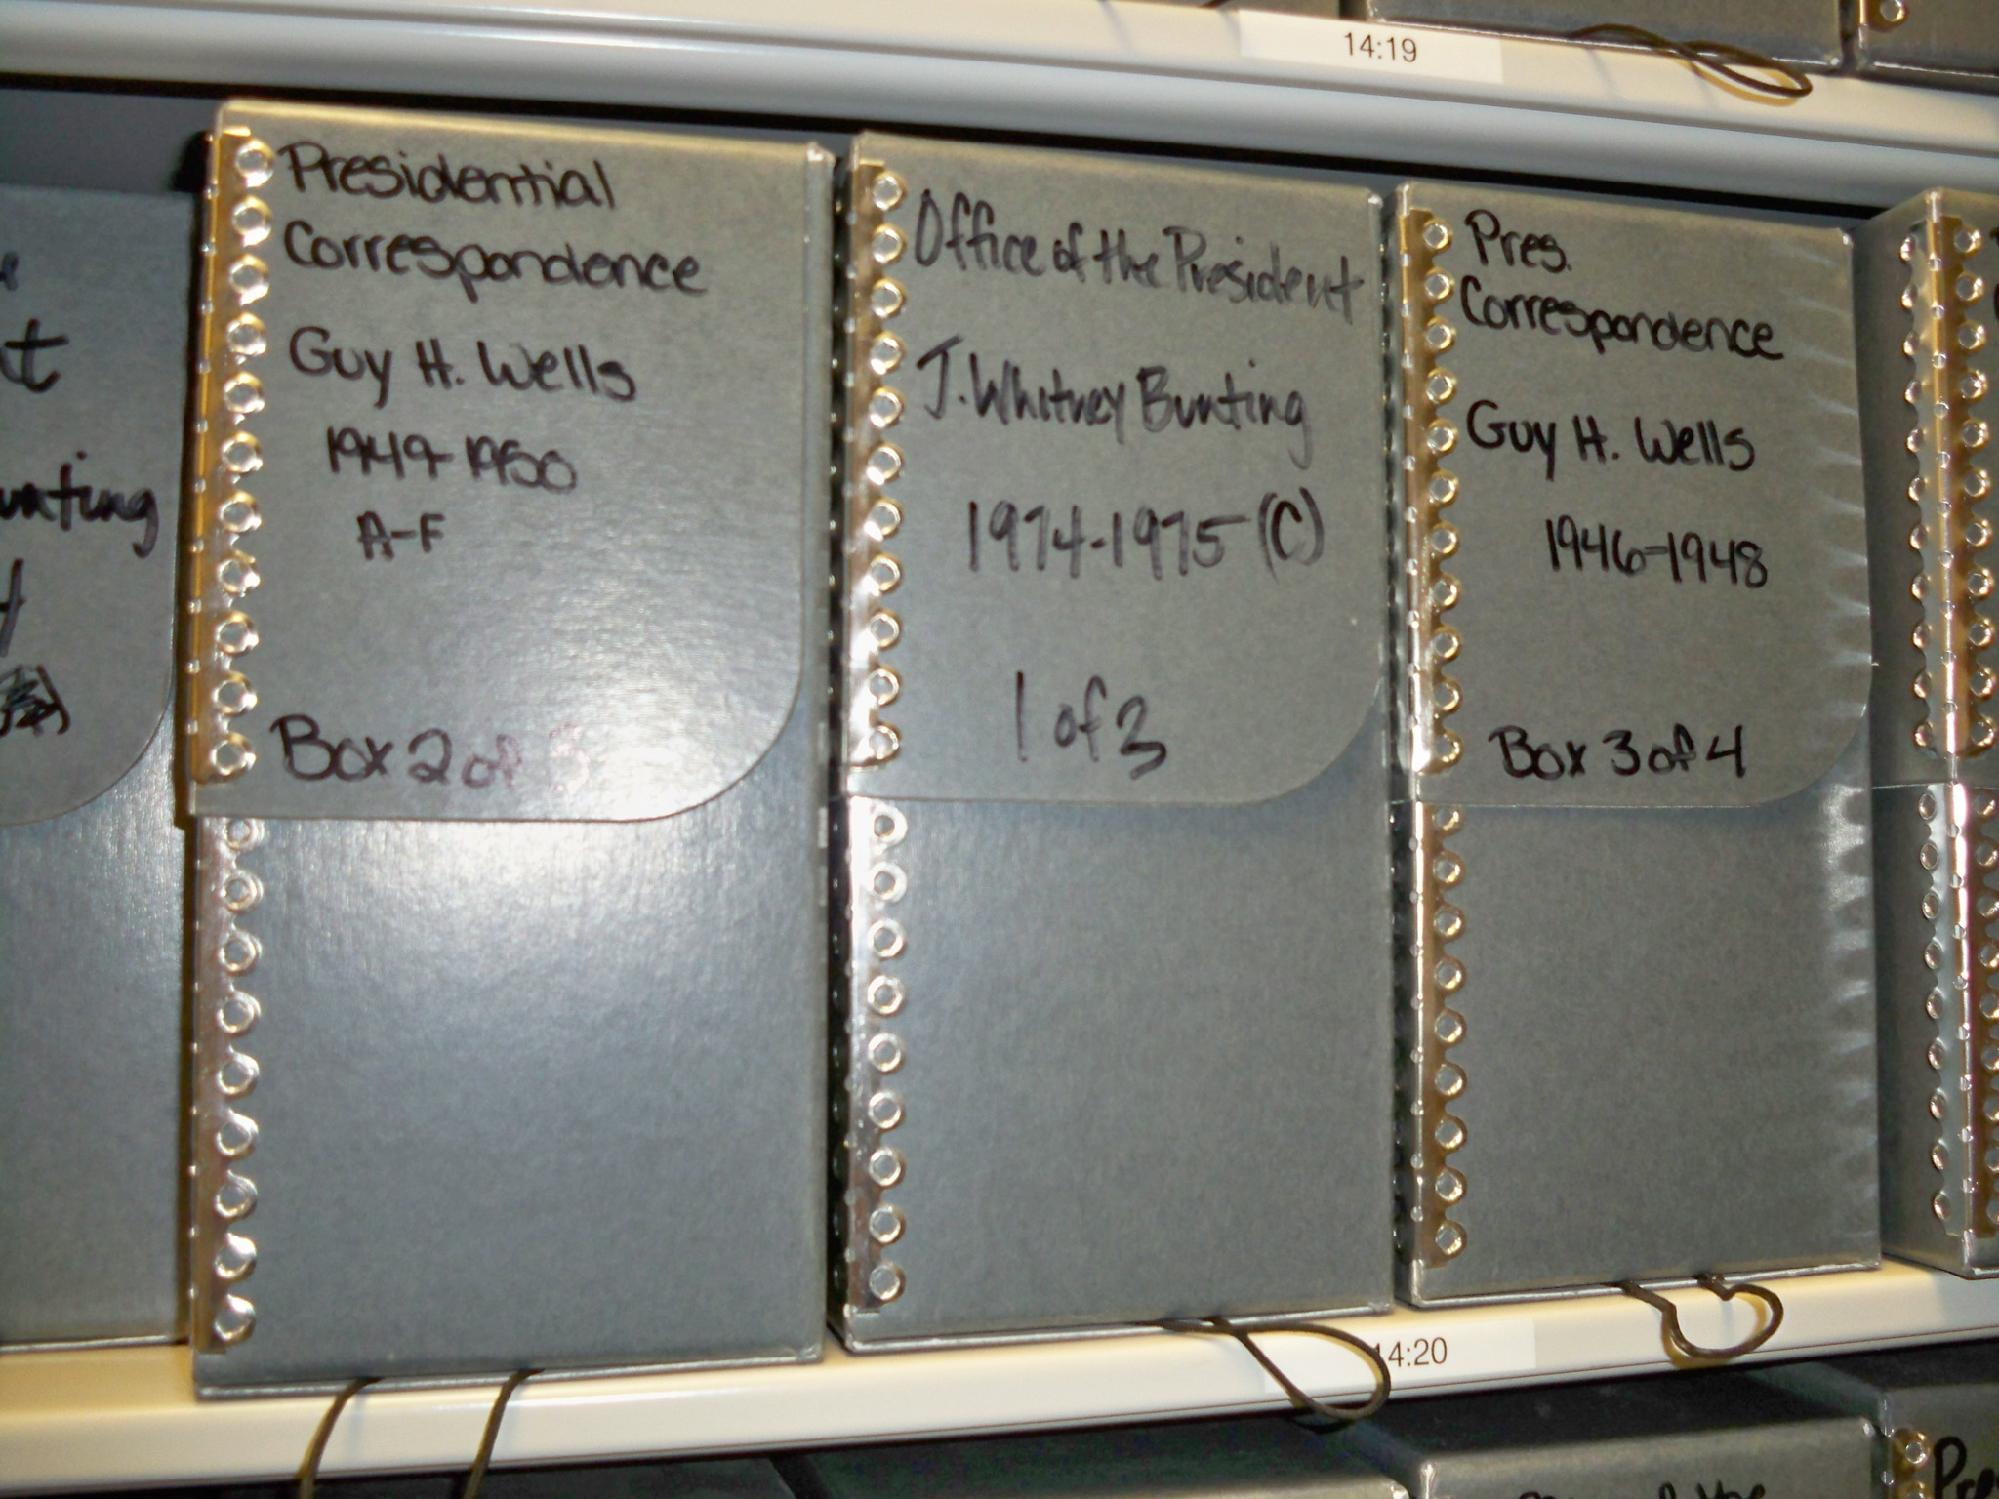 14:19
Presidential
Correspondence
Guy H. Wells
1949-1950
A-F
Box 2 of 5
Office of the President
J. Whitney Bunting
1974-1975 (C)
1 of 3
Pres.
Correspondence
Guy H. Wells
1946-1948
Box 3 of 4
14:20